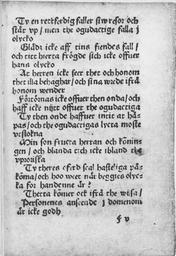 Ty en rettferdig faller siw resor och
står vp / men the ogudactige falla j
olycko
Glåd icke aff tins fiendes fall /
och titt herta frögde sich icke offuer
hans olycko
At herren icke seer thet och honom
thet illa behaghar / och sina wrede ifrå
honom wender
Förtörnas icke offuer then onda / och
haff icke nijt offuer the ogudactiga
Ty then onde haffuer intit at hå
pas / och the ogudactigas lycta moste
vtslokna
Min son fructa herran och konun
gen / och blanda tich icke ibland the
vproriska
Ty theres
kōma / och hoo weet når beggies olyc
ka for handenne år ?
Thetta komer ock ifrå the wisa /
Personenes anseende j domenom
år icke godh